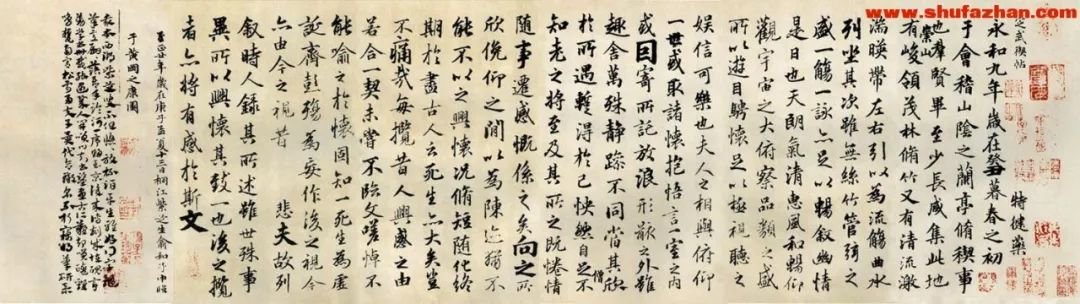 武禊帖
特健藥
永和九年歲在癸丑暮春之初
于會稽山陰之蘭亭脩稧事
也羣賢畢至少長咸集此地
有崇山峻領茂林脩竹又有清流激
湍暎帶左右引以為流觴曲水
列坐其次雖無絲竹管弦之
盛一觴一詠亦足以暢敘幽情
是日也天朗氣清惠風和暢仰
觀宇宙之大俯察品類之盛
所以遊目騁懷足以極視聽之
娛信可樂也夫人之相與俯仰
一世或取諸懷抱悟言一室之內
或因寄所託放浪形骸之外雖
趣舍萬殊靜躁不同當其欣
於所遇蹔得於己怏然自足不
僧
知老之將至及其所之既惓情
随事遷感慨係之矣向之所
欣俛仰之閒以為陳迹猶不
能不以之興懷況脩短隨化終
期於盡古人云死生亦大矣豈
不痛哉每攬昔人興感之由
若合一契未嘗不臨文嗟悼不
能喻之於懷固知一死生為虛
誕齊彭殤為妄作後之視今
亦由今之視昔 悲夫故列
叙時人錄其所述雖世殊事
異所以興懷其致一也後之攬
者亦將有感於斯文
至正廿年歲在庚子孟夏十二日桐江紫芝生俞和子中臨
于黃岡之康園
www.shufazhan.com